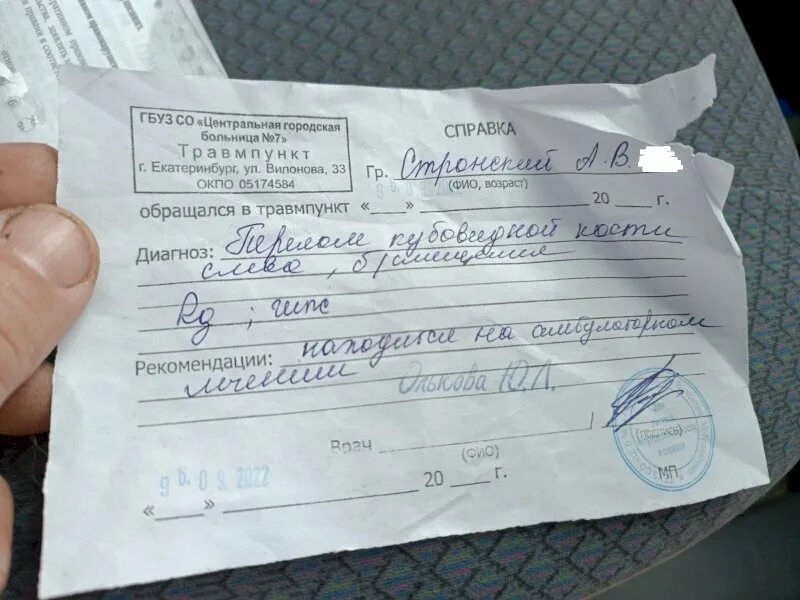 ГБУЗ СО «Центральная городская
больница №7»
Травмпункт
г. Екатеринбург, ул. Вилонова, 33
ОКПО 05174584
СПРАВКА
Гр. Стронский А.В.
(ФИО, возраст)
обращался в травмпункт «___» ______ 20 ___ г.
Диагноз: Перелом кубовидной кости
слева, б/смещения
Rg; гипс
Рекомендации: находится на амбулаторном
лечении Олькова Ю.Л.
Врач
(подпись)
(ФИО)
МП
09 2022
«___» ______ 20 ___ г.